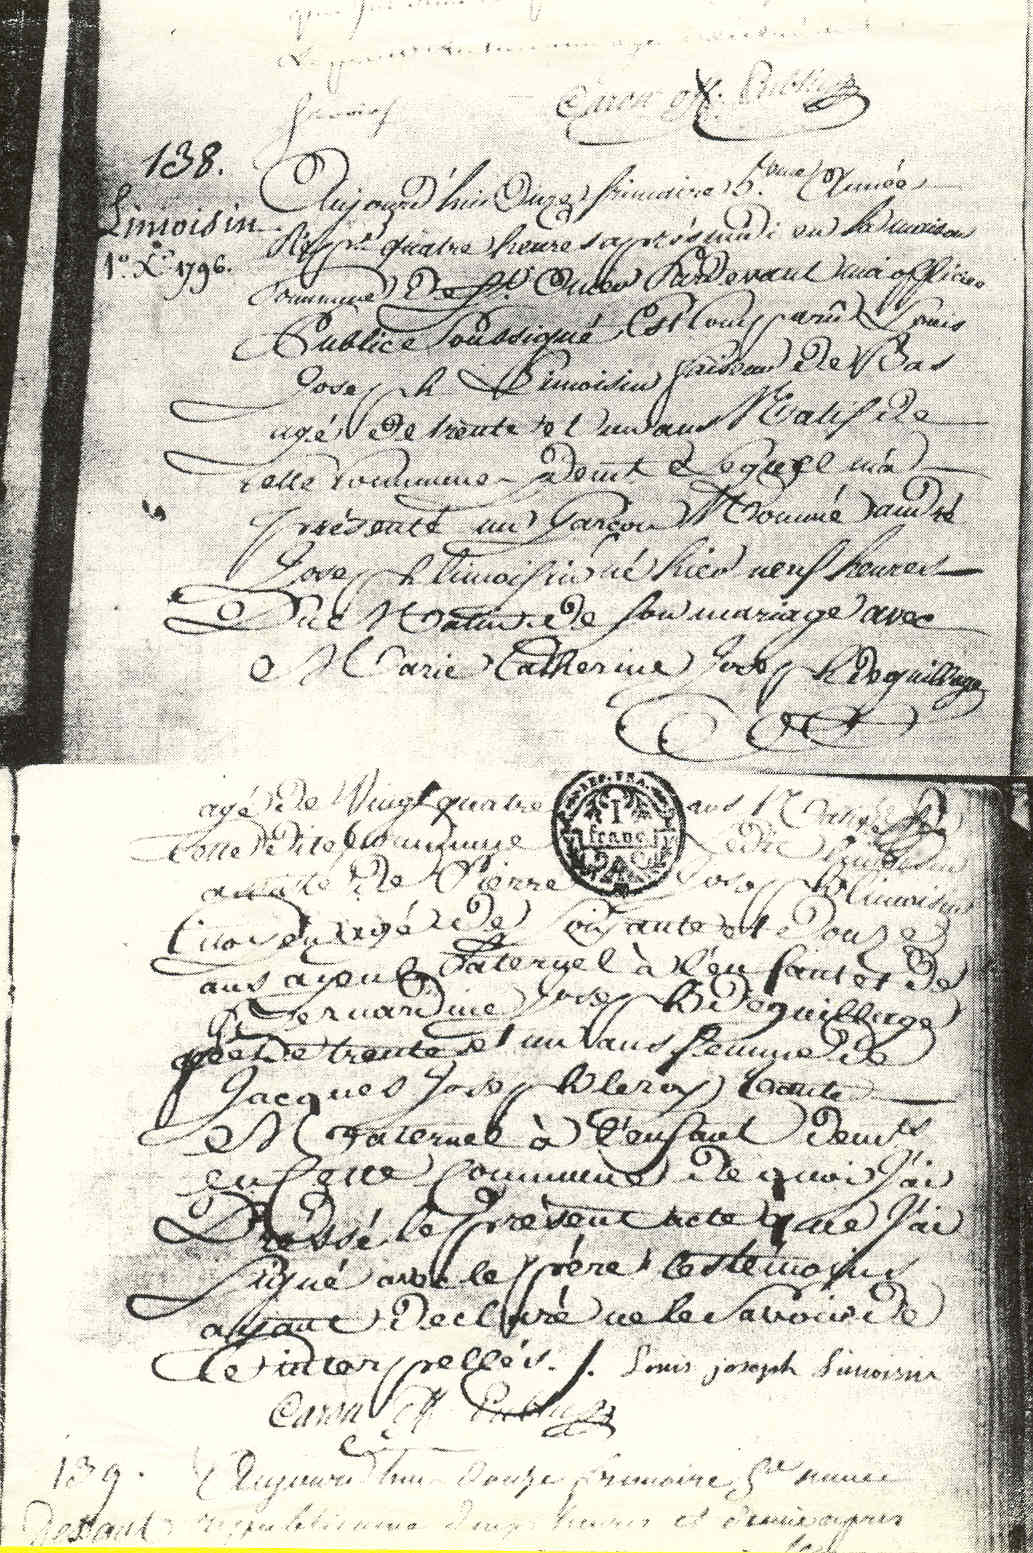 Caron off. Public
138.
Limoisin
1º Xre 1796.
Aujourd'hui Onze frimaire 5.eme Année
Rép.e quatre heures après midi en la maison
Commune De St. Omer Pardevant moi officier
Public Soussigné Est Comparû Louis
Joseph Limoisin faiseur De Bas
agé de trente et un ans Natif de
cette Commune y Demt. Lequel m'a
présenté un Garçon Nommé andré
Joseph limoisin né hier neuf heures
Du Matin de son mariage avec
Marie Catherine Joseph deguillage
agé De Vingt quatre ans Native de
Cette Dite Commune Ledit Limoisin
assisté De Pierre Joseph limoisin
Citoyen agé De Soixante et Douze
ans ayeul Paternel à l'enfant et De
Bernardine Joseph Deguillage
agée De trente et un ans femme De
Jacques Joseph leroy tante
Maternel à l'enfant demts
en Cette Commune De quoi J'ai
Dressé le présent acte que J'ai
signé avec le père les témoins
ayant Declaré ne le Savoir De
Ce interpellés. Louis joseph Limoisin
Caron off Public
REP. FRA.
1
franc
139.
Aujourd'hui douze frimaire 5e année
républicaine heures et demie après